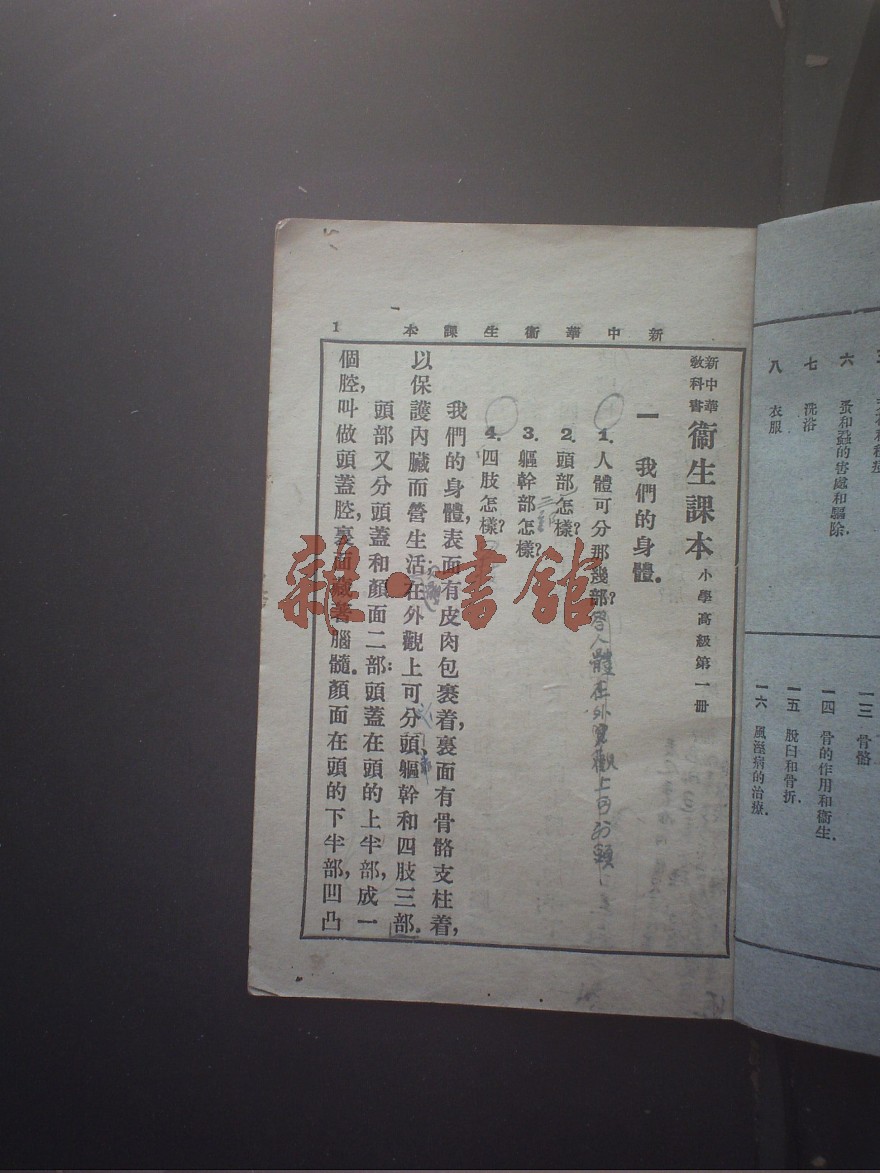 新中華衞生課本 1
新中華
教科書
衞生課本 小學高級第一册
一 我們的身體.
1. 人體可分那幾部? 答人體在外觀上可分頭
2. 頭部怎樣?
3. 軀幹部怎樣?
4. 四肢怎樣?
我們的身體,表面有皮肉包裹着,裏面有骨骼支柱着,
以保護內臟而營生活.在外觀上可分頭、軀幹和四肢三部.
頭部又分頭蓋和顏面二部:頭蓋在頭的上半部,成一
個腔,叫做頭蓋腔,裏面藏着腦髓.顏面在頭的下半部,凹凸
六 蚤和蝨的害處和驅除.
七 洗浴
八 衣服
一三 骨骼
一四 骨的作用和衞生.
一五 脫臼和骨折.
一六 風溼病的治療.
雜·書館